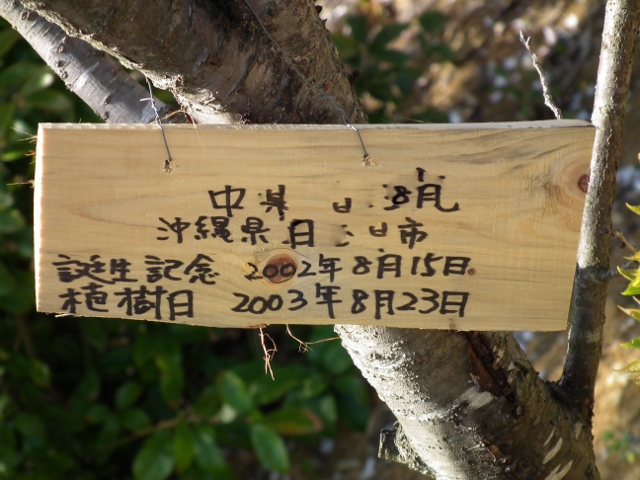 中
沖縄県 市
誕生記念 2002年8月15日
植樹日 2003年8月23日